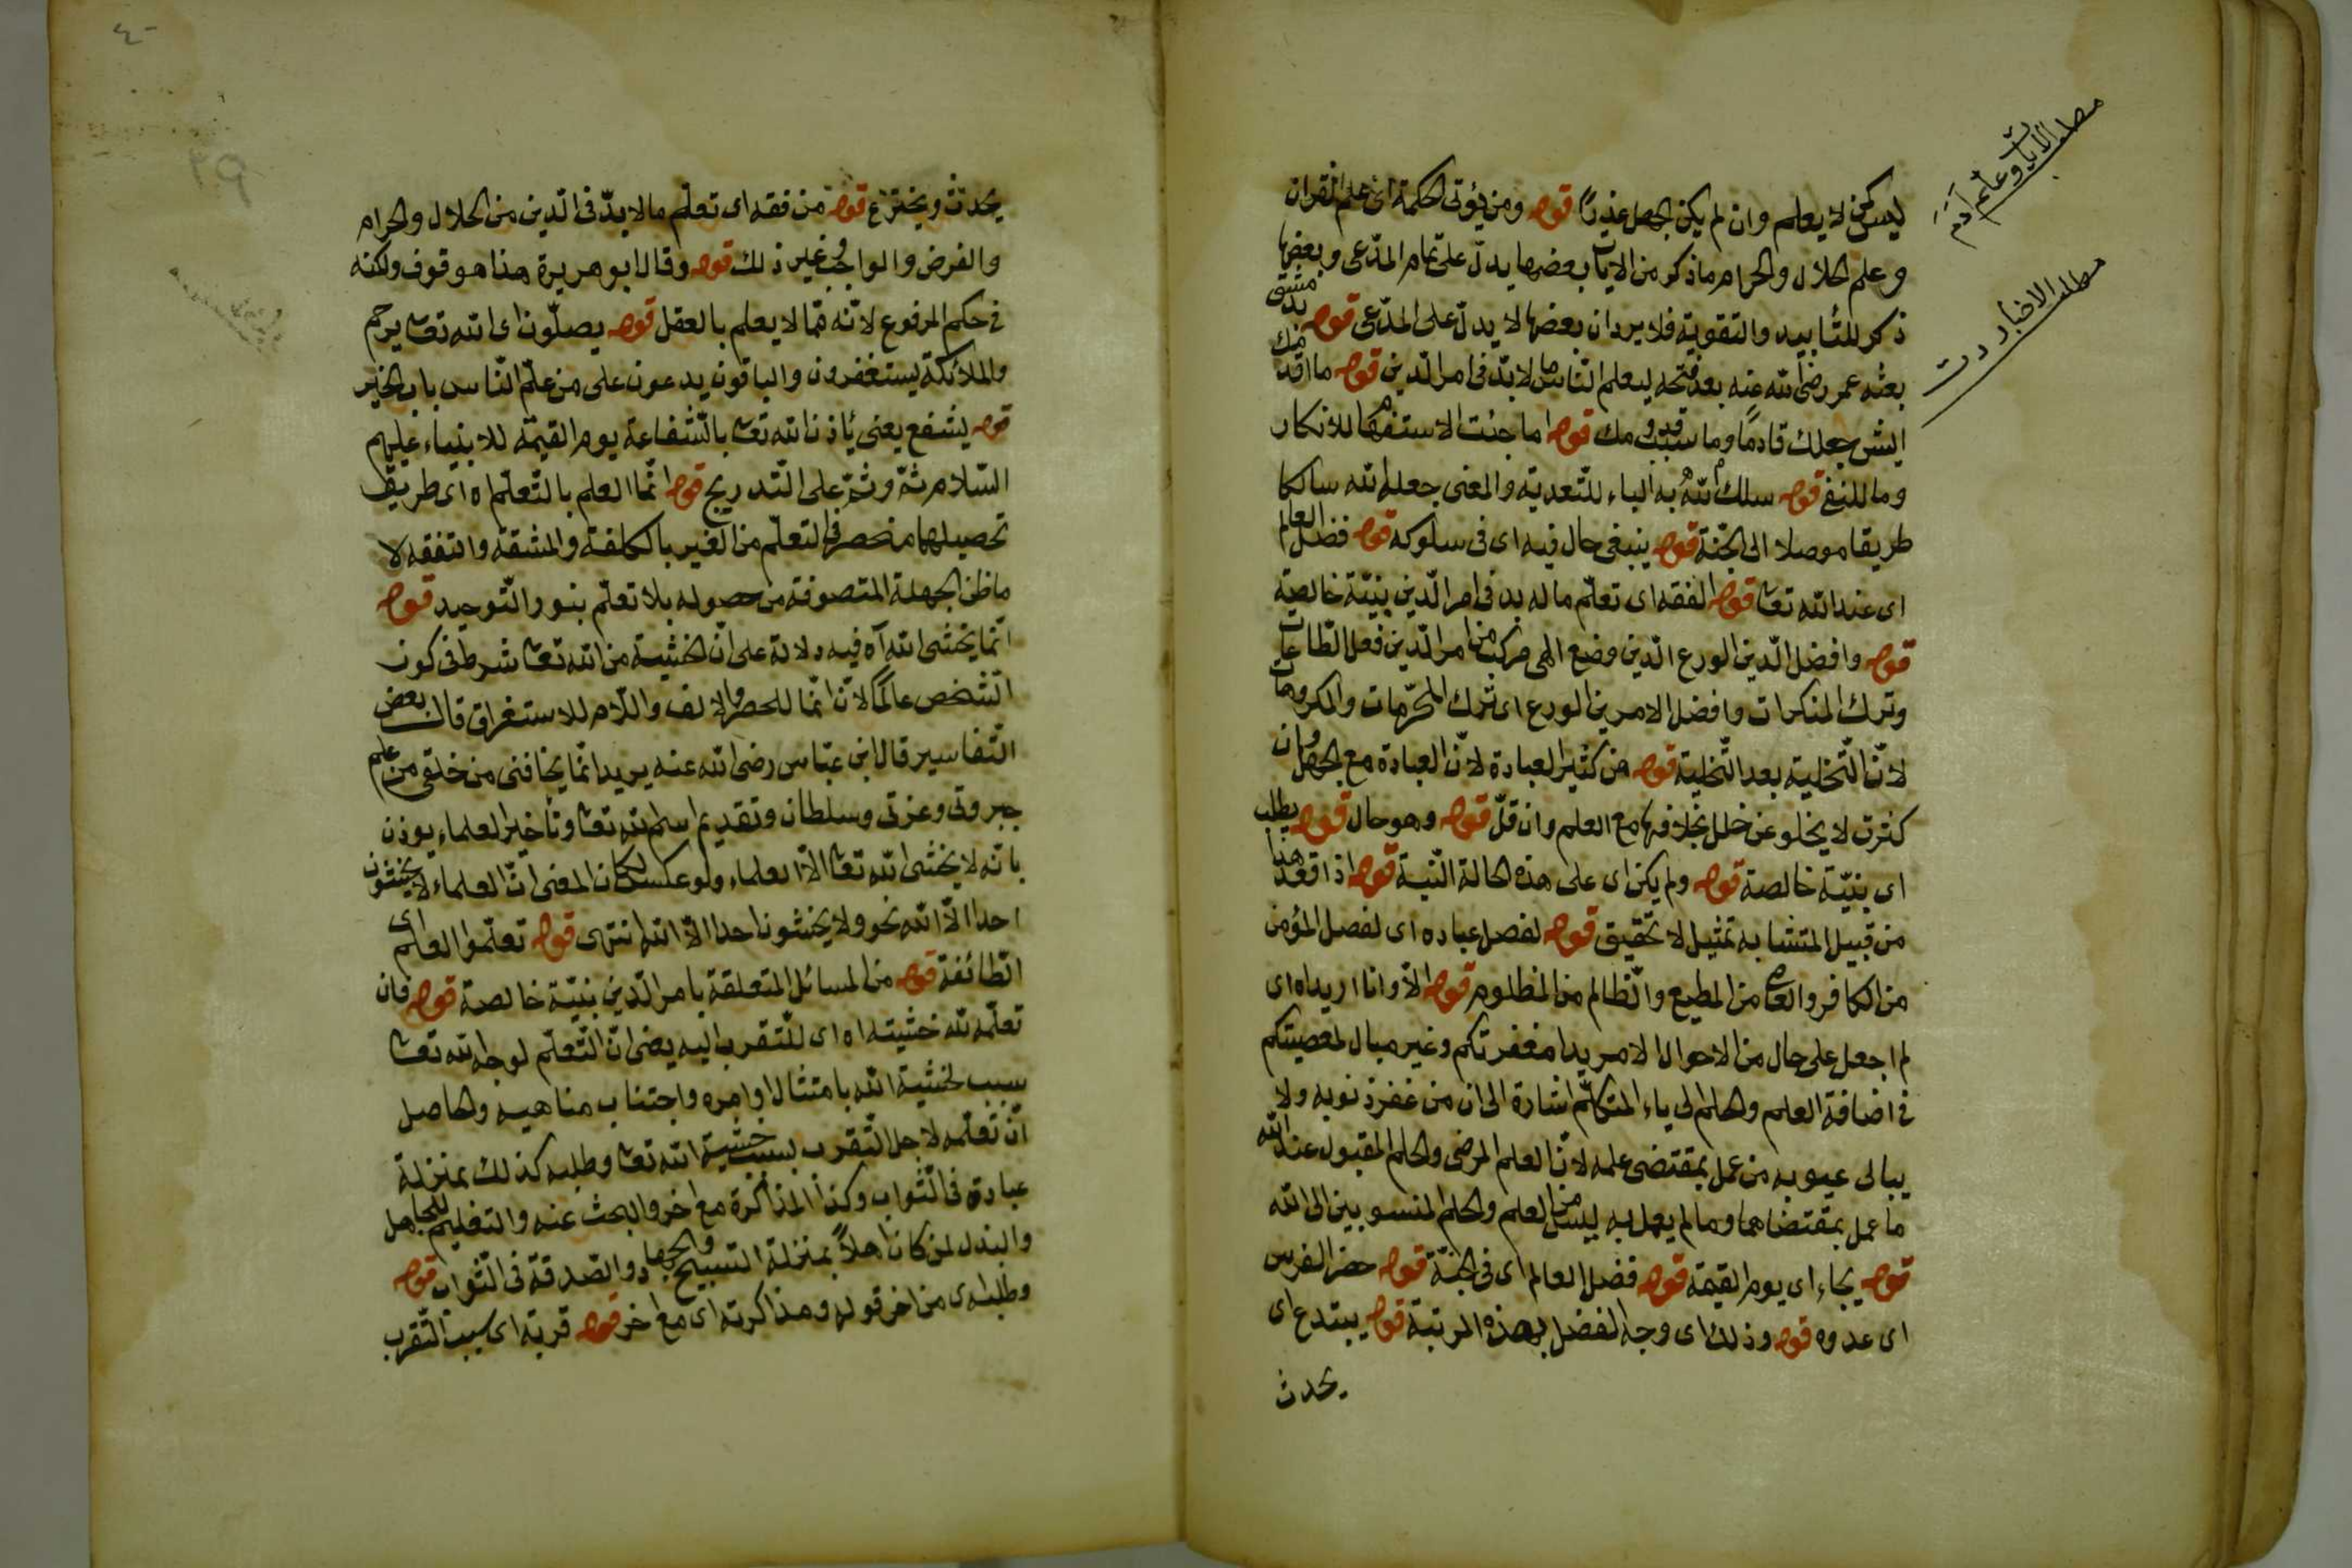 مطلب الايات وعلم ادم
ليس كمن لا يعلم وان لم يكن الجهل عذرا قوله ومن يؤتى الحكمة اى علم القران
وعلم الحلال والحرام ما ذكر من الايات بعضها يدل على تمام المدعى وبعضها
ذكر للتأييد والتقوية فلا يرد ان بعضها لا يدل على المدعى قوله دمشق
مطلب الاخبار
بعثه عمر رضى الله عنه بعد فتحه ليعلم الناس ما لا بد فى امر الدين قوله ما اقدمك
ايش جعلك قادما وما سبب قدومك قوله اما جئت الاستفهام للانكار
وما للنفى قوله سلك الله به الباء للتعدية والمعنى جعله الله سالكا
طريقا موصلا الى الجنة قوله ينبغى حال فيه اى فى سلوكه قوله فضل العالم
اى عند الله تعا قوله الفقه اى تعلم ما له بد فى امر الدين بنية خالصة
قوله وافضل الدين الورع الدين وضع الهى مركب من امر الدين فعل الطاعات
وترك المنكرات وافضل الامرين الورع اى ترك المحرمات والمكروهات
لان التخلية بعد التخلية قوله من كثير العبادة لان العبادة مع الجهل وان
كثرت لا يخلو عن خلل بخلافها مع العلم وان قل قوله وهو حال قوله يطلب
اى بنية خالصة قوله ولم يكن اى على هذه الحالة النية قوله اذا قعد هذا
من قبيل المتشابه تمثيل لا تحقيق قوله لفصل عباده اى لفصل المؤمن
من الكافر والعاصى من المطيع والظالم من المظلوم قوله الا وانا اريد اه اى
لم اجعل على حال من الاحوال الا مريدا مغفرتكم وغير مبال لمعصيتكم
فى اضافة العلم والحلم الى ياء المتكلم اشارة الى ان من غفر ذنوبه ولا
يبالى عيوبه من عمل بمقتضى علمه لان العلم المرضى والحلم المقبول عند الله
ما عمل بمقتضاهما وما لم يعمل به ليس من العلم والحلم المنسوبين الى الله
قوله يجاء اى يوم القيمة قوله فضل العالم اى فى الجنة قوله حضر الفرس
اى عدوه قوله وذلك اى وجه الفضل بهذه المرتبة قوله يبتدع اى
يحدث
٤٠
٣٩
يحدث ويخترع قوله من فقه اى تعلم ما لا بد فى الدين من الحلال والحرام
والفرض والواجب وغير ذلك قوله وقال ابو هريرة هذا موقوف ولكنه
فى حكم المرفوع لانه مما لا يعلم بالعقل قوله يصلون اى الله تعا يرحم
والملائكة يستغفرون والباقون يدعون على من علم الناس باب الخير
قوله يشفع يعنى يأذن الله تعا بالشفاعة يوم القيمة للانبياء عليهم
السلام ثم وثم على التدريج قوله انما العلم بالتعلم اه اى طريق
تحصيلها منحصر فى التعلم من الغير بالكلفة والمشقة والتفقه لا
ما ظن الجهلة المتصوفة من حصوله بلا تعلم بنور التوحيد قوله
انما يخشى الله آه فيه دلالة على ان الخشية من الله تعا شرط فى كون
الشخص عالما لان انما للحصر والالف واللام للاستغراق قال بعض
التفاسير قال ابن عباس رضى الله عنه يريد انما يخافنى من خلقى من علم
جبروتى وعزتى وسلطان وتقديم اسم الله تعا وتأخير العلماء يوذن
بانه لا يخشى الله تعا الا العلماء ولو عكس لكان المعنى ان العلماء لا يخشون
احدا الا الله نحو ولا يخشون احدا الا الله انتهى قوله تعلموا العلم اى
الطائفة قوله من المسائل المتعلقة بامر الدين بنية خالصة قوله فان
تعلمه لله خشيته اه اى للتقرب اليه يعنى ان التعلم لوجه الله تعا
سبب لخشية الله بامتثال اوامره واجتناب مناهيه والحاصل
ان تعلمه لاجل التقرب بسبب خشية الله تعا وطلبه كذلك بمنزلة
عبادة فى الثواب وكذا المذاكرة مع اخر والبحث عنه والتعليم للجاهل
والبذل لمن كان اهلا بمنزلة التسبيح والجهاد والصدقة فى الثواب قوله
وطلبه اى من اخر قوله ومذاكرته اى مع اخر قوله قربة اى سبب التقرب